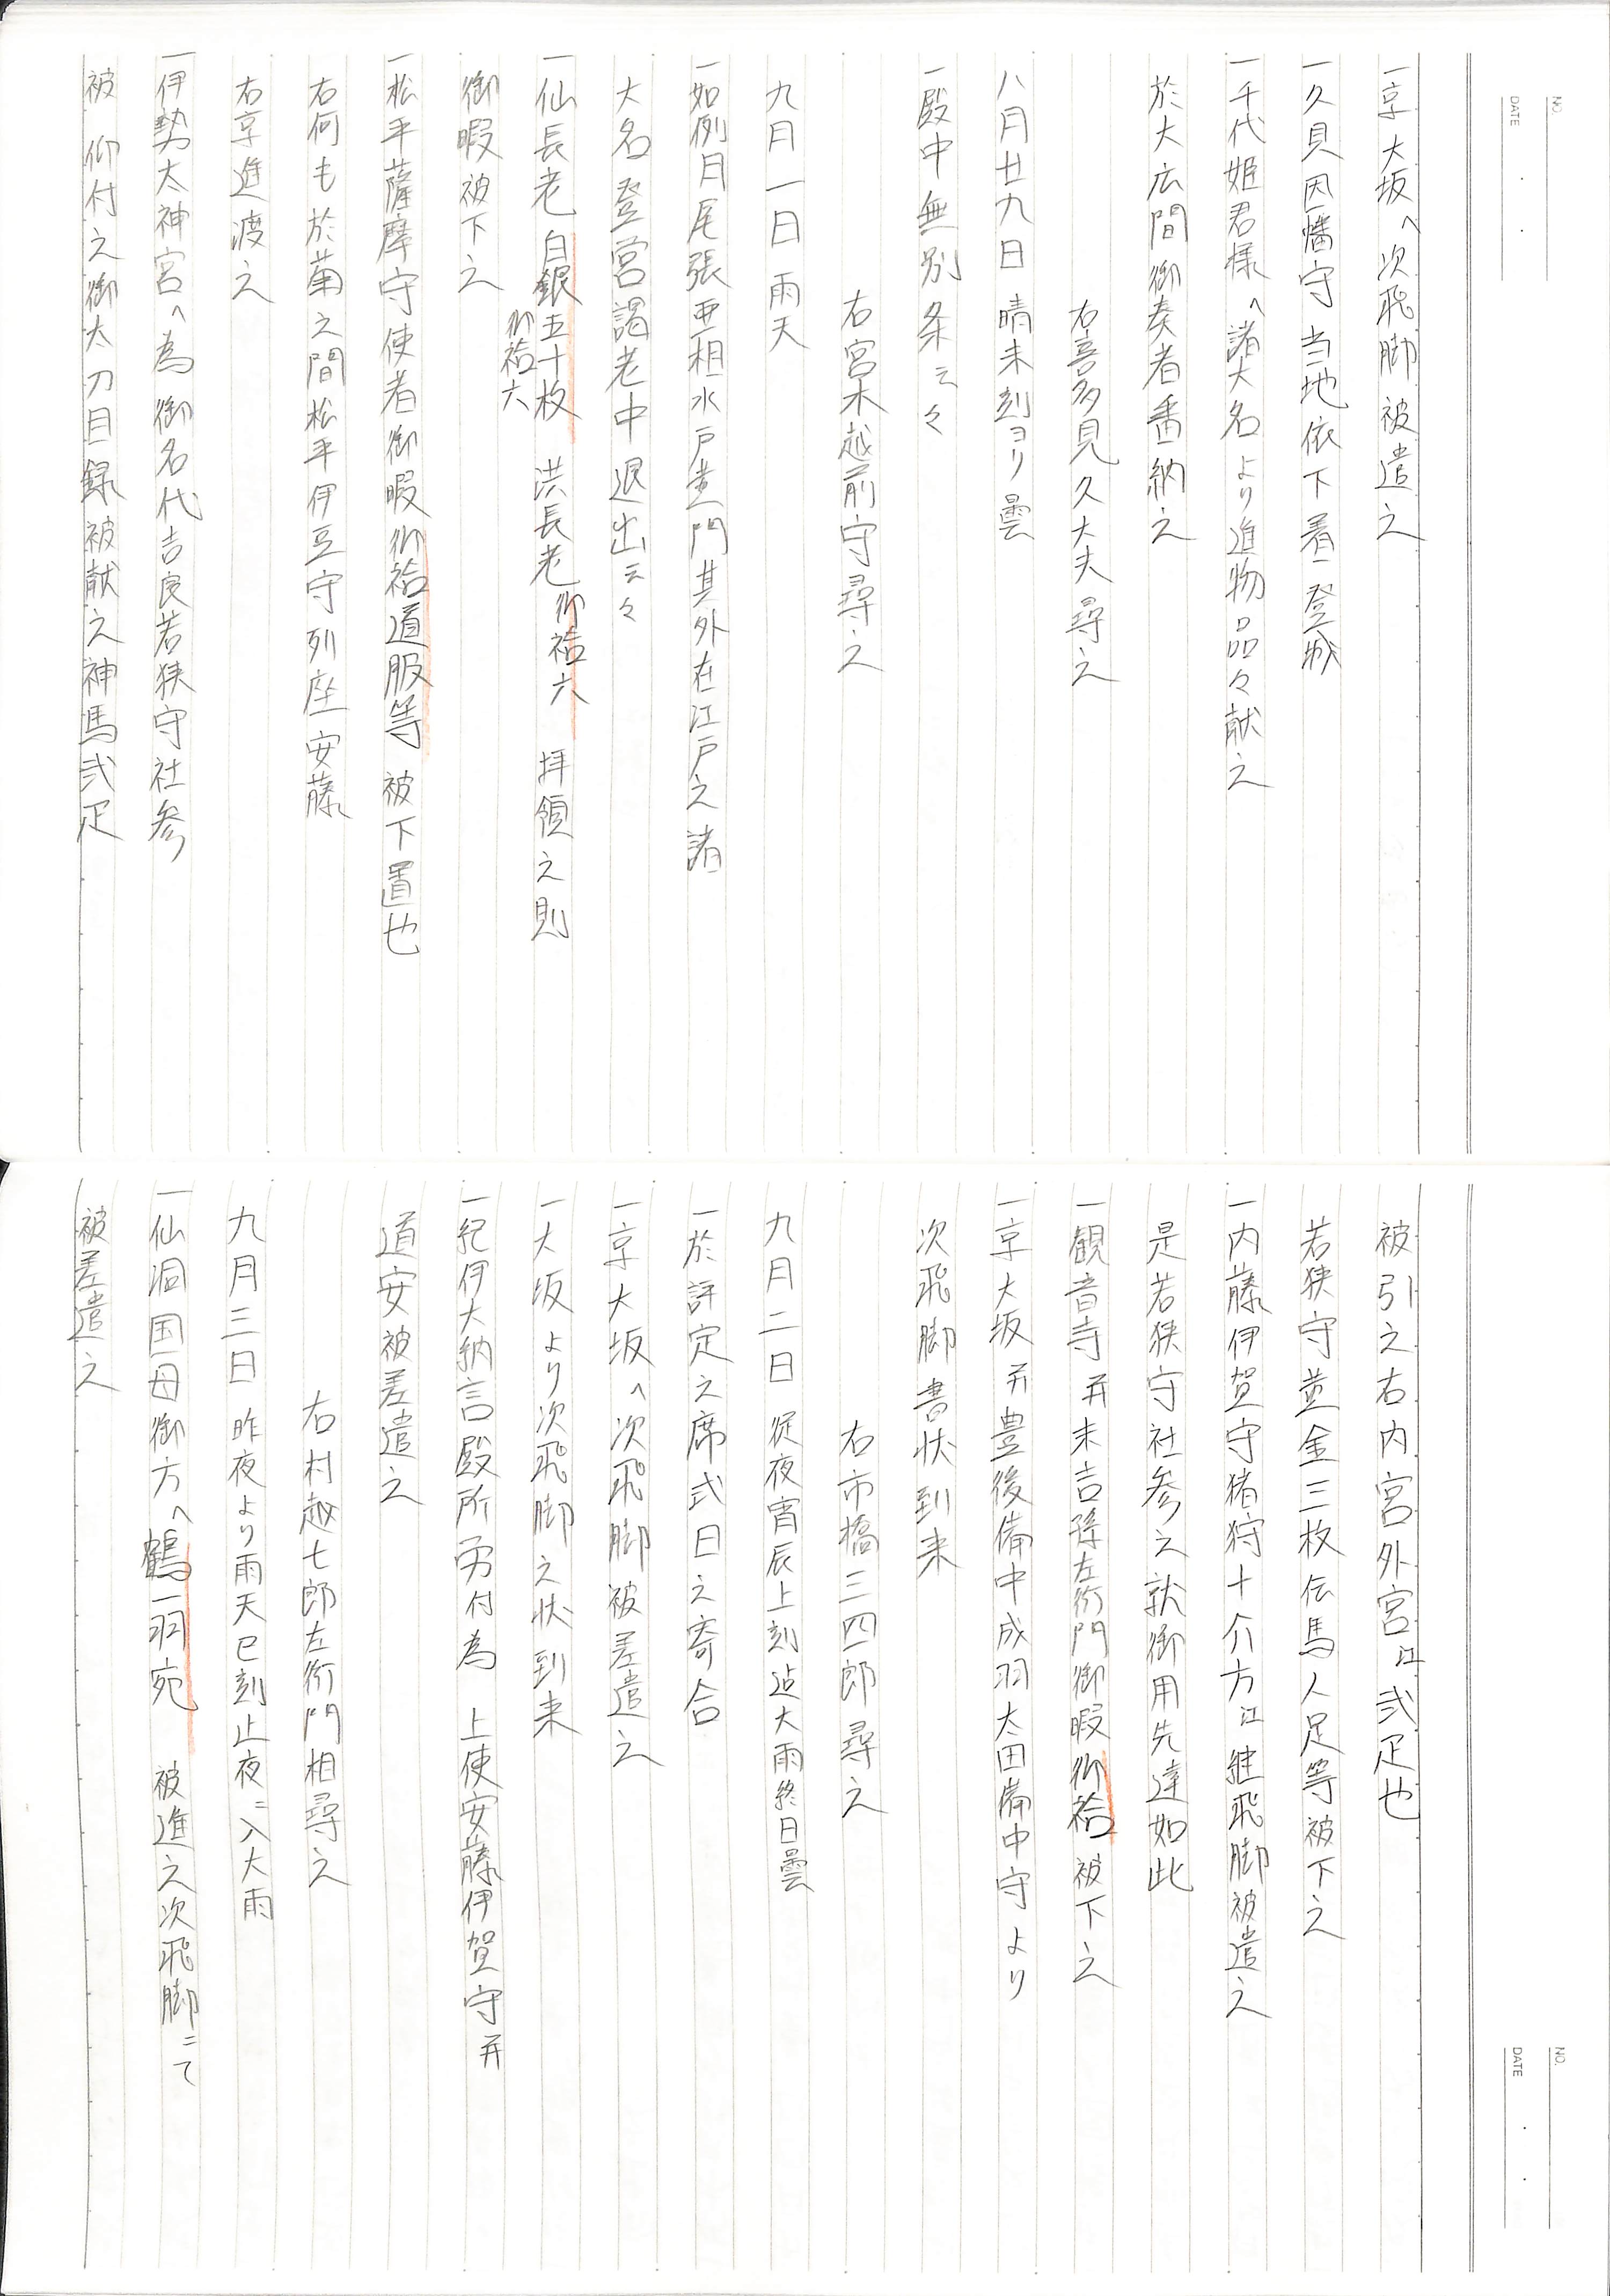 NO.
DATE
一京大坂へ次飛脚被遣之
一久貝因幡守当地依下着登城
一千代姫君様へ諸大名より進物品々献之
於大広間御奏者番納之
右喜多見久大夫尋之
八月廿九日 晴未刻ヨリ曇
一殿中無別条云々
右宮木越前守尋之
九月一日 雨天
一如例月尾張亜相水戸黄門其外在江戸之諸
大名登営謁老中退出云々
一仙長老 白銀五十枚 御袷六 洪長老 御袷六 拝領之則
御暇被下之
一松平薩摩守使者御暇御袷道服等 被下置也
右何も於菊之間松平伊豆守列座安藤
右京進渡之
一伊勢太神宮へ為御名代吉良若狭守社参
被 仰付之御太刀目録被献之神馬弐疋
NO.
DATE
被引之右内宮外宮江弐疋也
若狭守黄金三枚伝馬人足等被下之
一内藤伊賀守猪狩十介方江継飛脚被遣之
是若狭守社参之就御用先達如此
一観音寺并末吉孫左衛門御暇御袷被下之
一京大坂并豊後備中成羽太田備中守より
次飛脚書状到来
右市橋三四郎尋之
九月二日 従夜宵辰上刻迄大雨終日曇
一於評定之席式日之寄合
一京大坂へ次飛脚被差遣之
一大坂より次飛脚之状到来
一紀伊大納言殿所労付為 上使安藤伊賀守并
道安被差遣之
右村越七郎左衛門相尋之
九月三日 昨夜より雨天巳刻止夜ニ入大雨
一仙洞国母御方へ鶴一羽宛 被進之次飛脚ニて
被差遣之